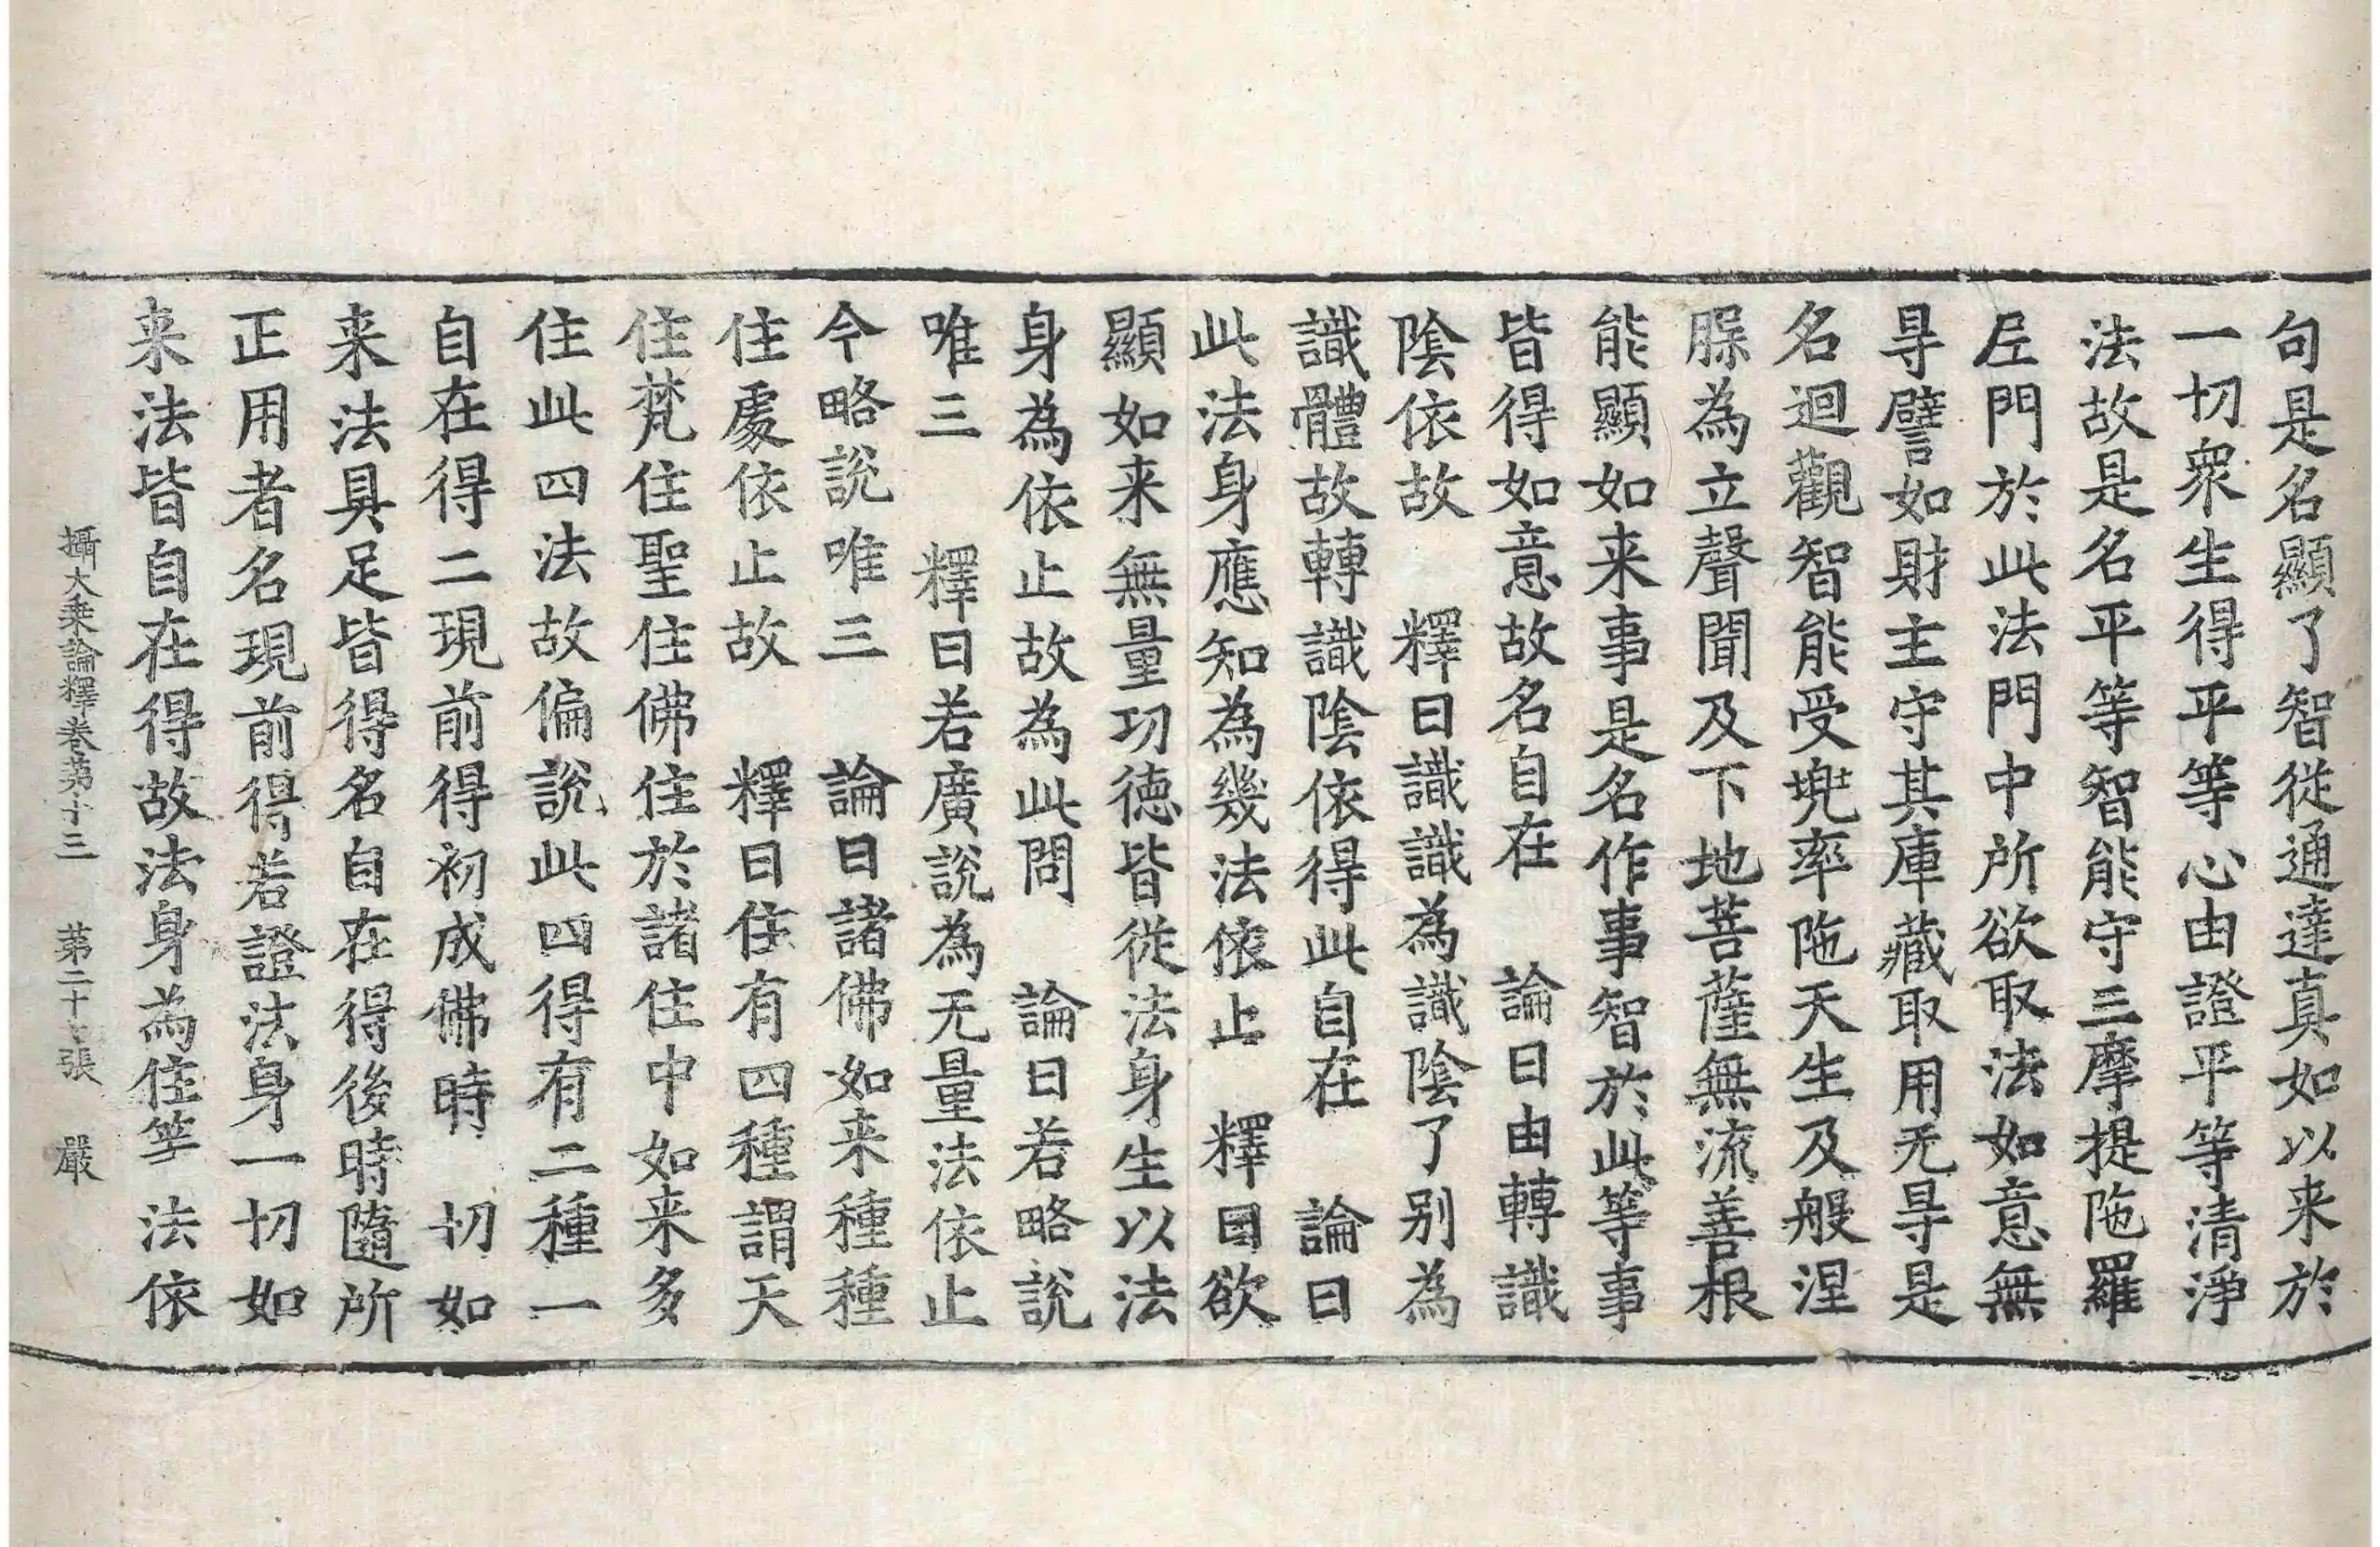 句是名顯了智從通達真如以来於
一切衆生得平等心由證平等清淨
法故是名平等智能守三摩提陁羅
𡰱門於此法門中所欲取法如意無
㝵譬如財主守其庫藏取用无㝵是
名迴觀智能受兠率陁天生及般涅
槃為立聲聞及下地菩薩無流善根
能顯如来事是名作事智於此等事
皆得如意故名自在　論曰由轉識
陰依故　釋曰識識為識陰了别為
識體故轉識陰依得此自在　論曰
此法身應知為幾法依止　釋曰欲
顯如来無量功徳皆從法身生以法
身為依止故為此問　論曰若略說
唯三　釋曰若廣說為无量法依止
今略說唯三　論曰諸佛如来種種
住處依止故　釋曰住有四種謂天
住梵住聖住佛住於諸住中如来多
住此四法故偏說此四得有二種一
自在得二現前得初成佛時　切如
来法具足皆得名自在得後時隨所
正用者名現前得若證法身一切如
来法皆自在得故法身為住等法依
攝大乗論釋卷苐十三　苐二十　張　嚴